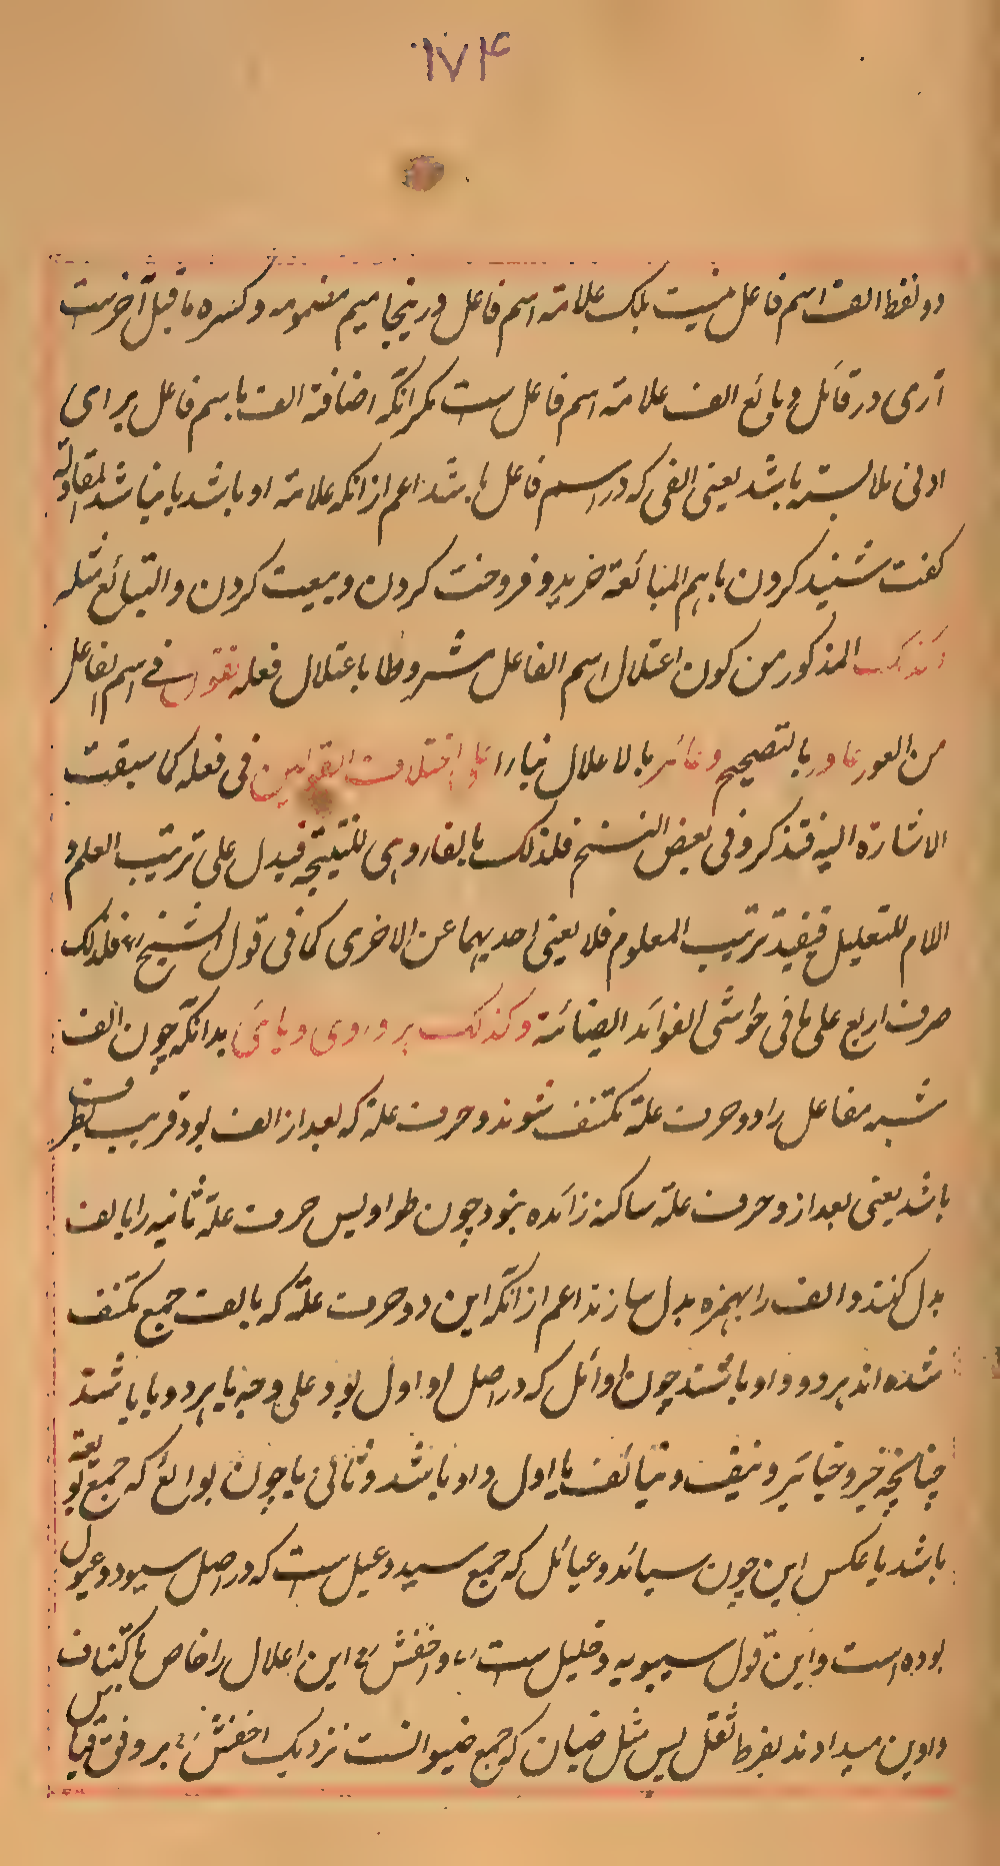 ۱۷۴
دو نقط الف اسم فاعل نیست بلکه علامته اسم فاعل درینجا میم مضمومه و کسره ماقبل آخرست
آری در قائل و بائع الف علامته اسم فاعل ست مگر آنکه اضافة الف باسم فاعل برای
ادنی ملابسته باشد یعنی الفی که در اسم فاعل باشد اعم از انکه علامته او باشد یا نباشد المقاولة
گفت شنید کردن باهم المبائعة خرید و فروخت کردن و بیعت کردن والتبائع مثله
وکذلک المذکور من کون اعتلال اسم الفاعل مشروطا باعتلال فعله نقول فی اسم الفاعل
من العور عاور بالتصحیح و غائر بالاعلال بناء علی اختلاف القولین فی فعله کما سبقت
الاشارة الیه فتذکر و فی بعض النسخ فلذلک بالفا و هی للنتیجة فیدل علی ترتیب العلم و
اللام للتعلیل فیفید ترتیب المعلوم فلا یغنی احدیهما عن الاخری کما فی قول الشیخ فلذلک
صرف اربع علی ما فی حواشی الفوائد الضیائیة و کذلک بر واوی و یایی بدانکه چون الف
شبه مفاعل را دو حرف علة مکتنف شوند و حرف علة که بعد از الف بود قریب بطرف
باشد یعنی بعد از و حرف علة ساکنه زائده نبود چون طواویس حرف علة ثانیه را بالف
بدل کنند و الف را بهمزه بدل سازند اعم از انکه این دو حرف علة که بالف جمع مکتنف
شده اند هر دو واو باشند چون اوائل که در اصل اواول بود علی وجه یا هر دو یا باشند
چنانچه خیر و خیائر و نیف و نیائف یا اول واو باشد و ثانی یا چون بوائع که جمع بویعة
باشد یا عکس این چون سیائد و عیائل که جمع سید و عیل ست که در اصل سیود و عیول
بوده است و این قول سیبویه و خلیل ست و اخفش این اعلال را خاص باکتناف
واوین میدارند بفرط ثقل پس مثل ضیان که جمع ضیوانست نزدیک اخفش بر وفق قیاس